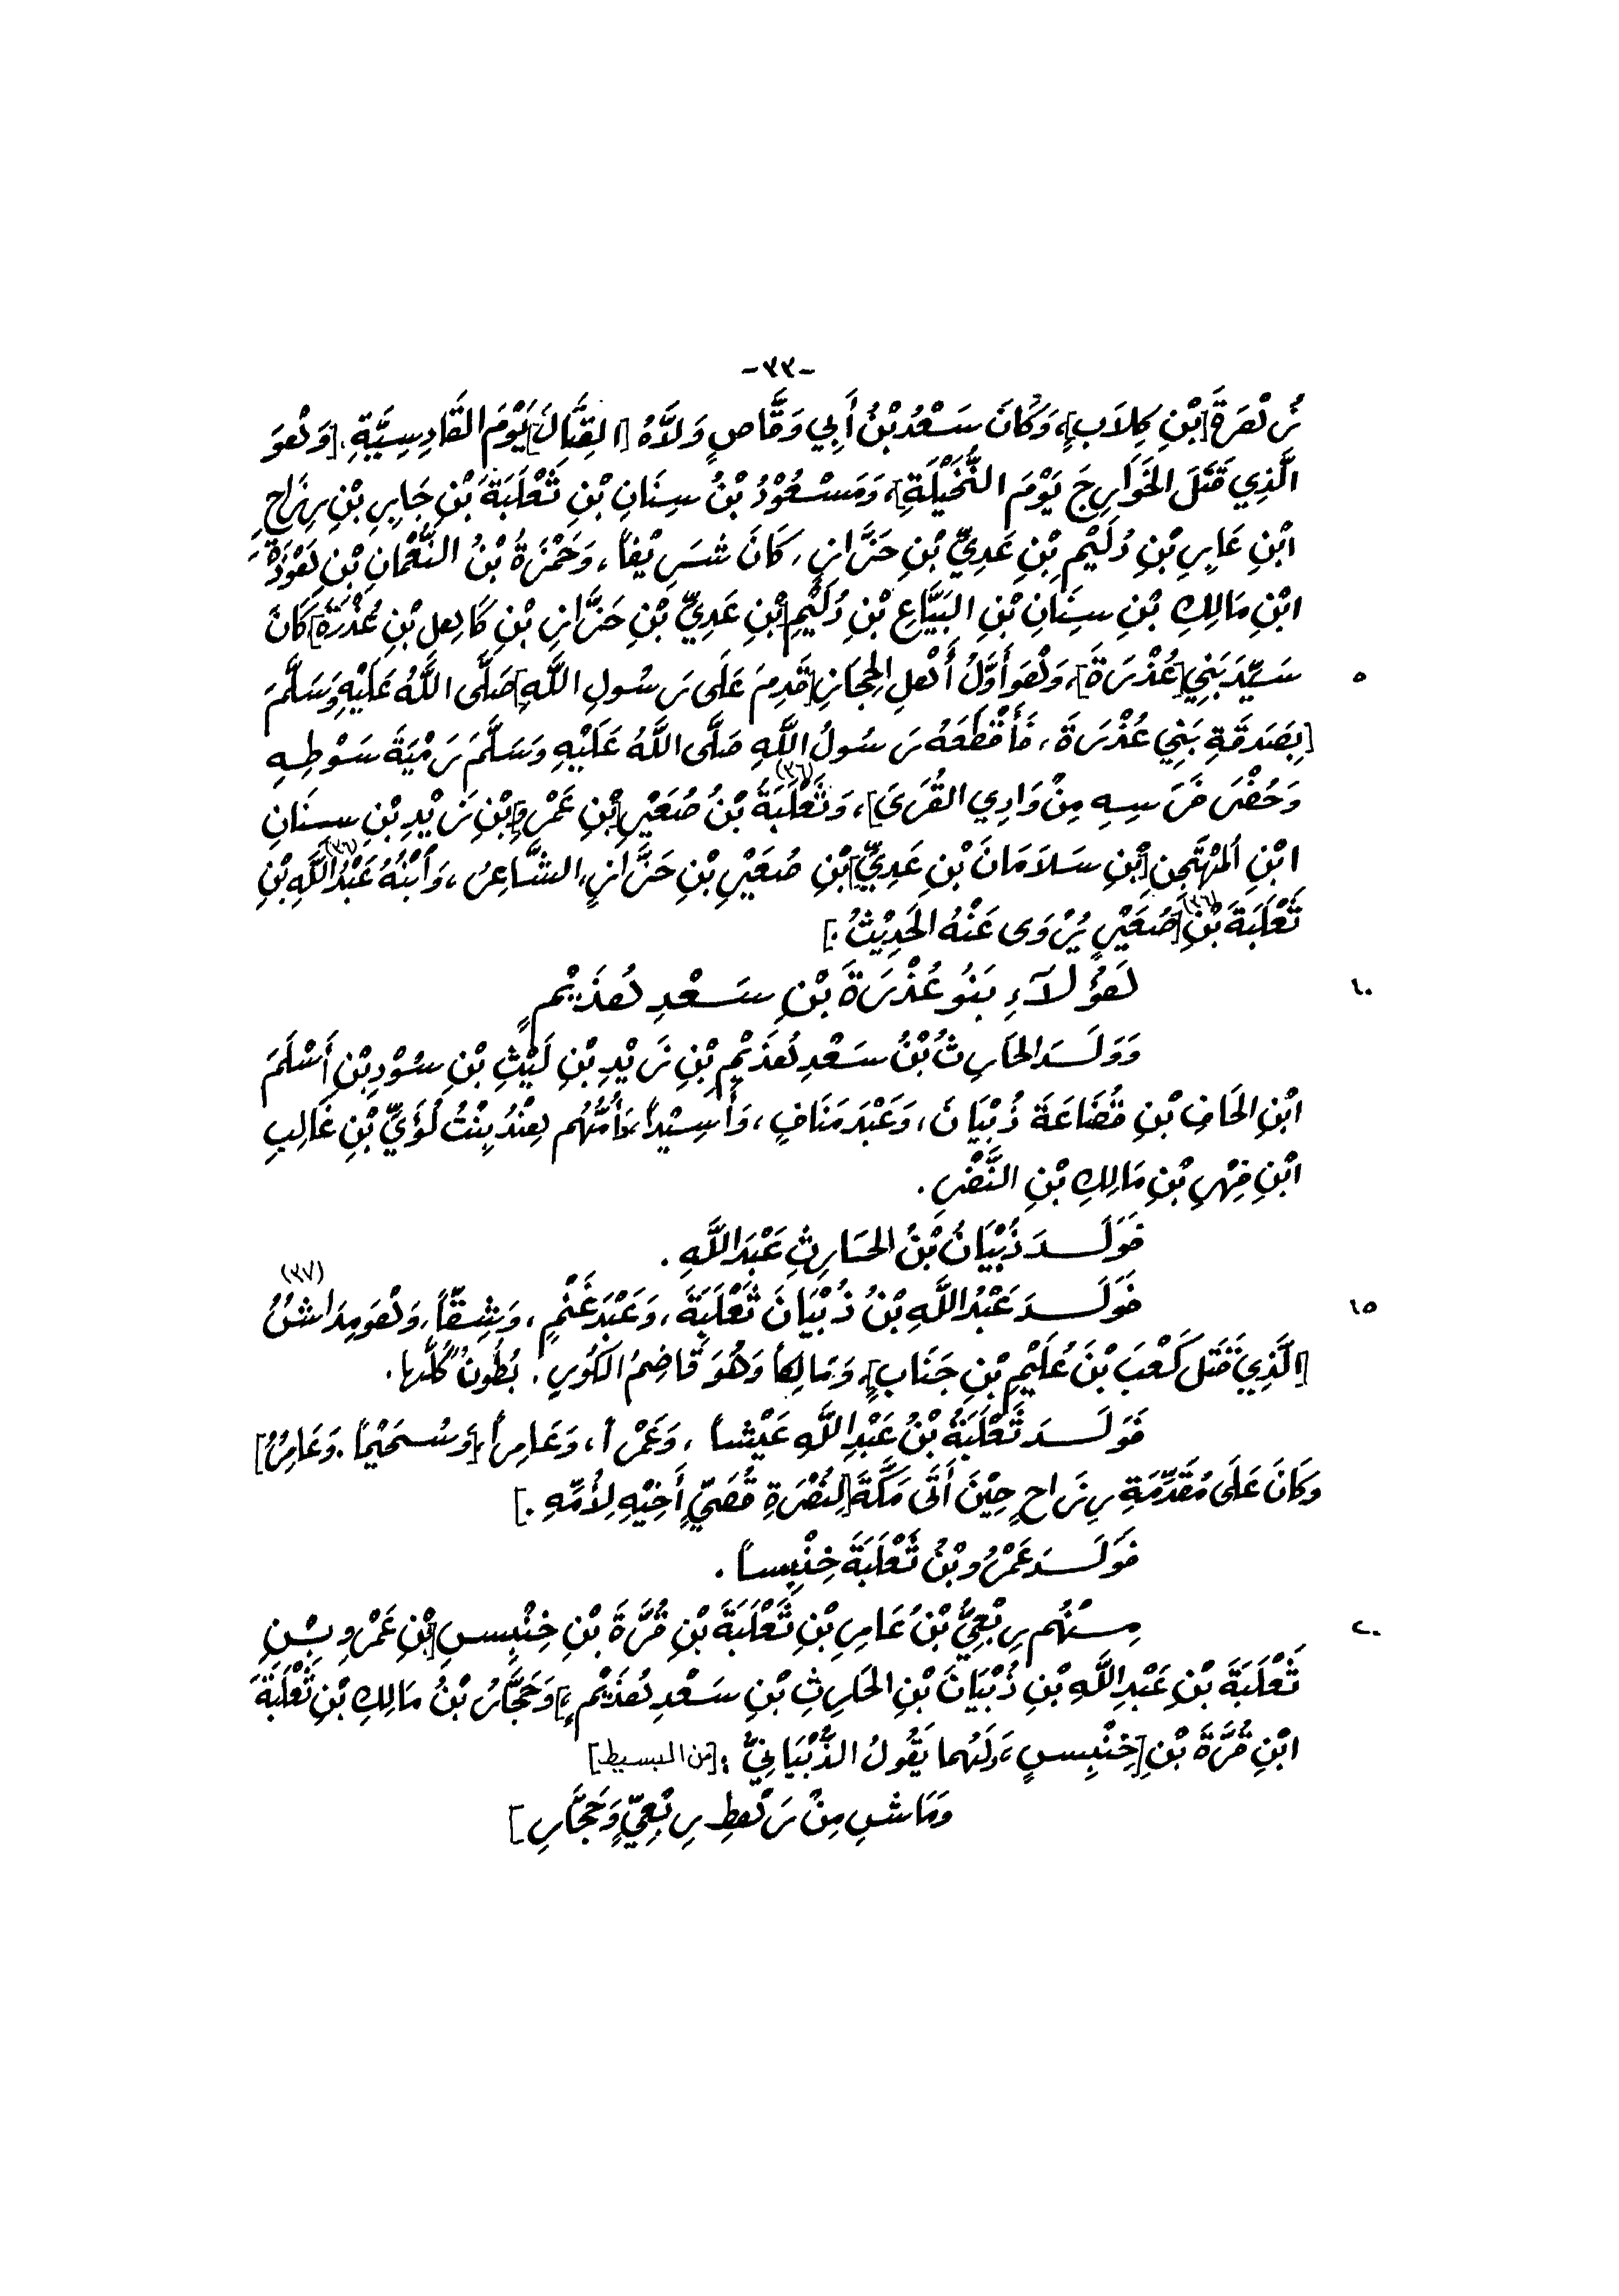 -٣٣-
زُهْرَةَ [بْنِ كِلَابٍ]، وَكَانَ سَعْدُ بْنُ أَبِي وَقَّاصٍ وَلَّاهُ [القِتَالَ] يَوْمَ القَادِسِيَّةِ. [وَهُوَ
الَّذِي قَتَلَ الخَوَارِجَ يَوْمَ النُّخَيْلَةِ]، وَمَسْعُوْدُ بْنُ سِنَانِ بْنِ ثَعْلَبَةَ بْنِ جَابِرِ بْنِ رِزَاحِ
ابْنِ عَابِرِ بْنِ دُلَيْمِ بْنِ عَدِيِّ بْنِ حَزَّازٍ، كَانَ شَرِيْفاً، وَحَمْزَةُ بْنُ النُّعْمَانِ بْنِ هَوْذَةَ
ابْنِ مَالِكِ بْنِ سِنَانِ بْنِ البَيَّاعِ بْنِ دُلَيْمِ [بْنِ عَدِيِّ بْنِ حَزَّازِ بْنِ كَاهِلِ بْنِ عُذْرَةَ] كَانَ
٥ سَيِّدَ بَنِي [عُذْرَةَ]، وَهُوَ أَوَّلُ أَهْلِ الحِجَازِ [قَدِمَ عَلَى رَسُولِ اللَّهِ] صَلَّى اللَّهُ عَلَيْهِ وَسَلَّمَ
[بِصَدَقَةِ بَنِي عُذْرَةَ، فَأَقْطَعَهُ رَسُولُ اللَّهِ صَلَّى اللَّهُ عَلَيْهِ وَسَلَّمَ رَمْيَةَ سَوْطِهِ
وَحُضْرَ فَرَسِهِ مِنْ وَادِي القُرَى]، وَثَعْلَبَةُ (٣٦) بْنُ صُعَيْرِ [بْنِ عَمْرِو] بْنِ زَيْدِ بْنِ سِنَانِ
ابْنِ المُهْتَجِنِ [بْنِ سَلَامَانَ بْنِ عَدِيِّ] بْنِ صُعَيْرِ بْنِ حَزَّازٍ، الشَّاعِرُ، وَابْنُهُ عَبْدُ اللَّهِ (٣٦) بْنِ
ثَعْلَبَةَ بْنِ (٣٦) [صُعَيْرٍ يُرْوَى عَنْهُ الحَدِيْثُ.]
١٠ هَؤُلَآءِ بَنُو عُذْرَةَ بْنِ سَعْدِ هُذَيْمٍ
وَوَلَدَ الحَارِثُ بْنُ سَعْدِ هُذَيْمِ بْنِ زَيْدِ بْنِ لَيْثِ بْنِ سُوْدِ بْنِ أَسْلَمَ
ابْنِ الحَافِ بْنِ قُضَاعَةَ ذُبْيَانَ، وَعَبْدَ مَنَافٍ، وَأَسِيْداً، وَأُمُّهُم هِنْدُ بِنْتُ لُؤَيِّ بْنِ غَالِبِ
ابْنِ فِهْرِ بْنِ مَالِكِ بْنِ النَّضْرِ.
فَوَلَدَ ذُبْيَانُ بْنُ الحَارِثِ عَبْدَ اللَّهِ.
١٥ فَوَلَدَ عَبْدُ اللَّهِ بْنُ ذُبْيَانَ ثَعْلَبَةَ، وَعَبْدَ غَنْمٍ، وَشِقّاً، وَهُوَ مِدَاشٌ (٣٧)
[الَّذِي قَتَلَ كَعْبَ بْنَ عُلَيْمِ بْنِ جَنَابٍ]، وَمَالِكاً وَهُوَ قَاضِمُ الكُورِ. بُطُونٌ كُلُّها.
فَوَلَدَ ثَعْلَبَةُ بْنُ عَبْدِ اللَّهِ عَيْشاً، وَعَمْراً، وَعَامِراً، [وَسُحَيْماً. وَعَامِرٌ]
وَكَانَ عَلَى مُقَدِّمَةِ رِزَاحٍ حِيْنَ أَتَى مَكَّةَ [لِنُصْرَةِ قُصَيٍّ أَخِيْهِ لِأُمِّهِ.]
فَوَلَدَ عَمْرُو بْنُ ثَعْلَبَةَ خِنْبِساً.
٢٠ مِنْهُم رِبْعِيُّ بْنُ عَامِرِ بْنِ ثَعْلَبَةَ بْنِ قُرَّةَ بْنِ خِنْبِسِ [بْنِ عَمْرِو بْنِ
ثَعْلَبَةَ بْنِ عَبْدِ اللَّهِ بْنِ ذُبْيَانَ بْنِ الحَارِثِ بْنِ سَعْدِ هُذَيْمٍ]، وَحَجَّارُ بْنُ مَالِكِ بْنِ ثَعْلَبَةَ
ابْنِ قُرَّةَ بْنِ [خِنْبِسٍ، وَلَهُما يَقُولُ الذُّبْيَانِيُّ: [من البسيط]
وَمَاشِ مِنْ رَهْطِ رِبْعِيٍّ وَحَجَّارِ]